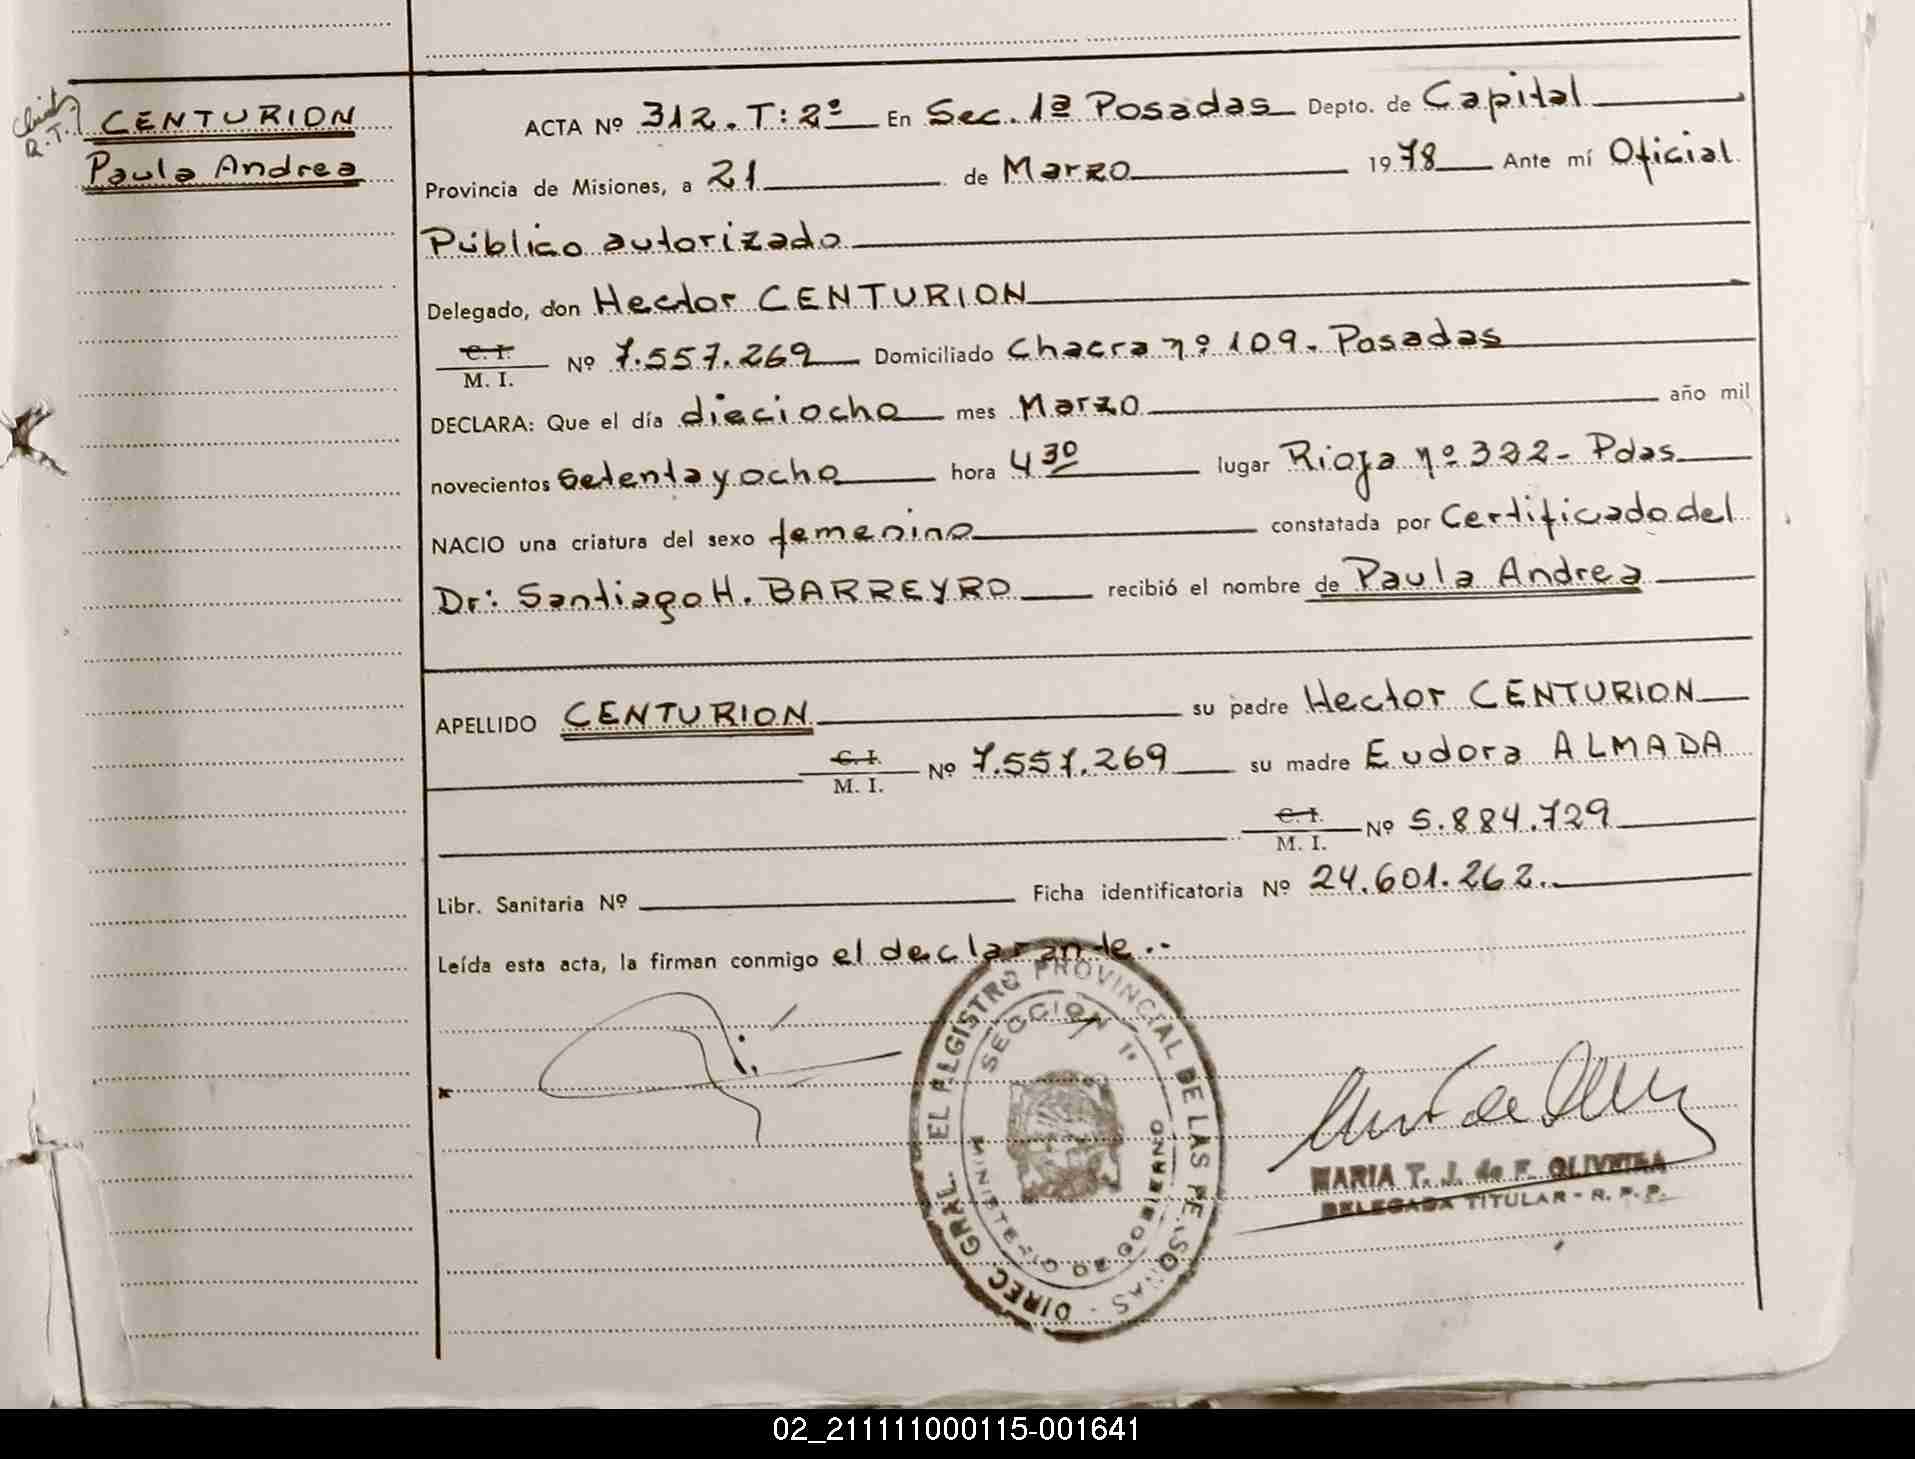 CENTURION
Paula Andrea
R.T.
ACTA Nº 312. T: 2º En Sec. 1ª Posadas Depto. de Capital
Provincia de Misiones, a 21 de Marzo 1978 Ante mí Oficial
Público autorizado
Delegado, don Hector CENTURION
C. I.
M. I. Nº 7.557.269 Domiciliado Chacra nº 109. Posadas
DECLARA: Que el día dieciocho mes Marzo año mil
novecientos setenta y ocho hora 4 30 lugar Rioja nº 322- Pdas
NACIO una criatura del sexo femenino constatada por Certificado del
Dr: Santiago H. BARREYRO recibió el nombre de Paula Andrea
APELLIDO CENTURION su padre Hector CENTURION
C. I.
M. I. Nº 7.557.269 su madre Eudora ALMADA
C. I.
M. I. Nº 5.884.729
Libr. Sanitaria Nº Ficha identificatoria Nº 24.601.262.
Leída esta acta, la firman conmigo el declarante.-
DIREC GRAL. EL REGISTRO PROVINCIAL DE LAS PERSONAS -
SECCION 1ª
MINISTERIO DE GOBIERNO
MARIA T. J. de F. OLIVEIRA
DELEGADA TITULAR - R. P. P.
02_211111000115-001641